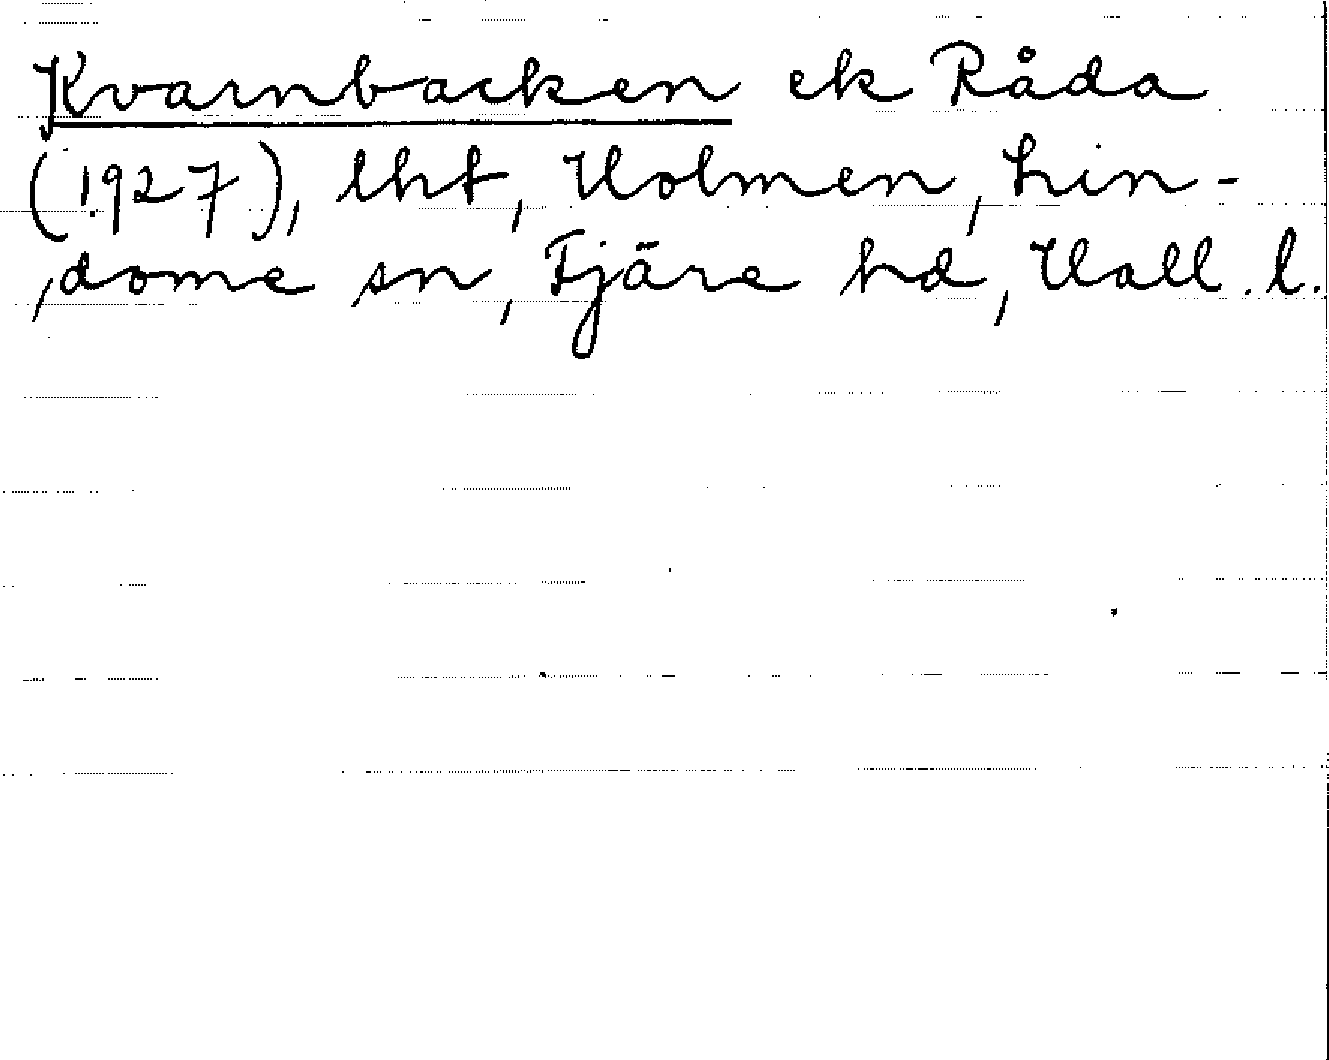 Kvarnbacken ek Råda
(1927), lht, Holmen, Lin-
dome sn, Fjäre hd, Hall. l.